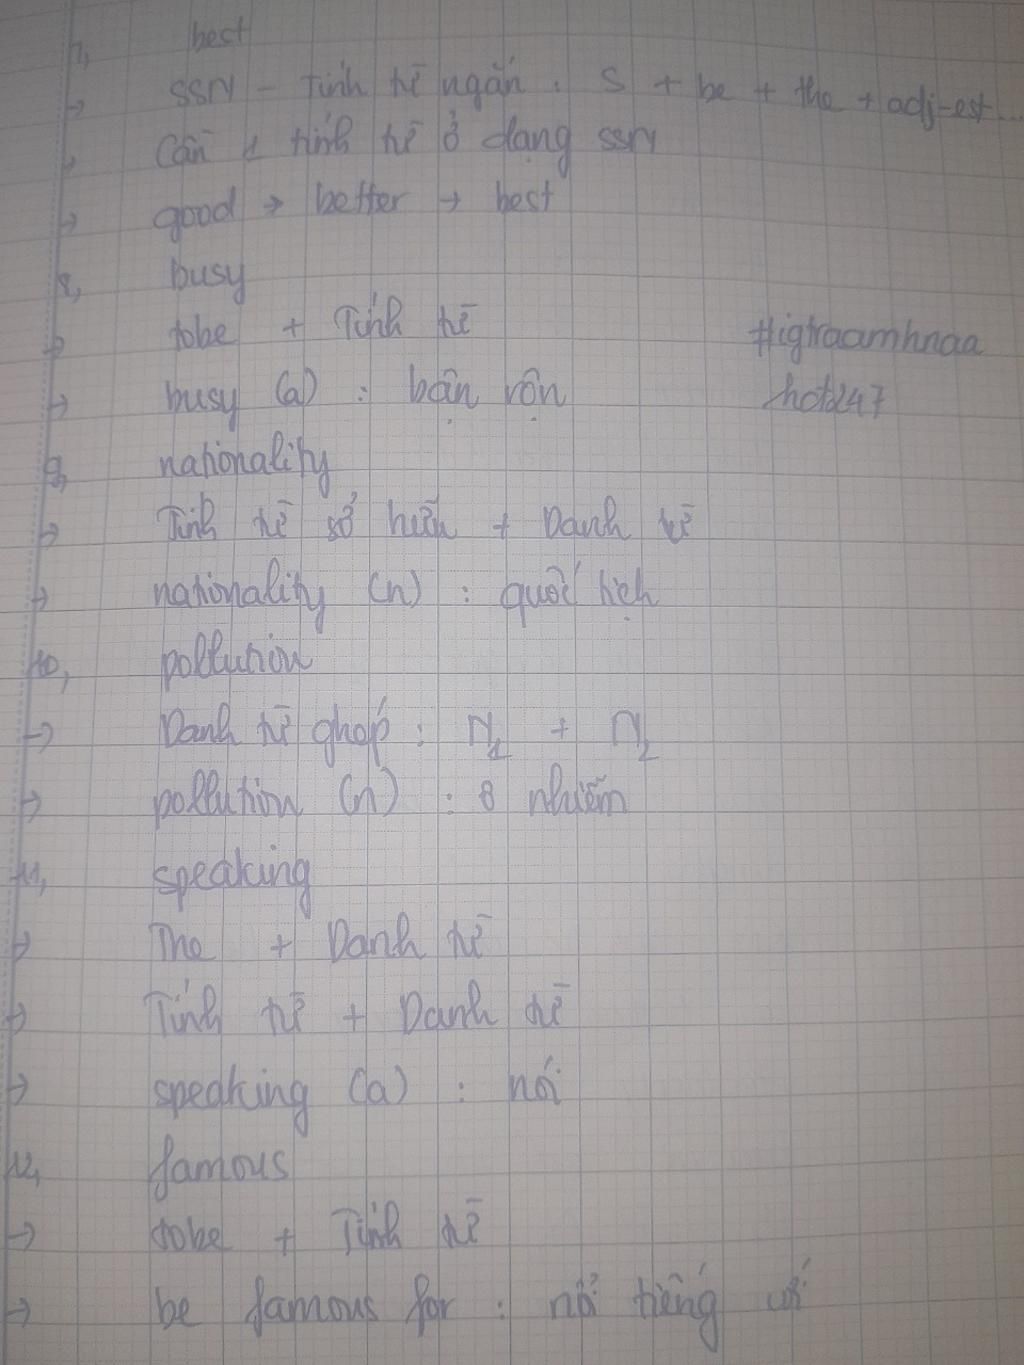 7, best
→ SSN – Tính từ ngắn : S + be + the + adj-est...
→ Cần 1 tính từ ở dạng SSN
→ good → better → best
8, busy
→ tobe + Tính từ #igtraamhnaa
→ busy (a) : bận rộn /hotd247
9, nationality
→ Tính từ sở hữu + Danh từ
→ nationality (n) : quốc tịch
10, pollution
→ Danh từ ghép : N1 + N2
→ pollution (n) : ô nhiễm
11, speaking
→ The + Danh từ
→ Tính từ + Danh từ
→ speaking (a) : nói
12, famous
→ tobe + Tính từ
→ be famous for : nổi tiếng với